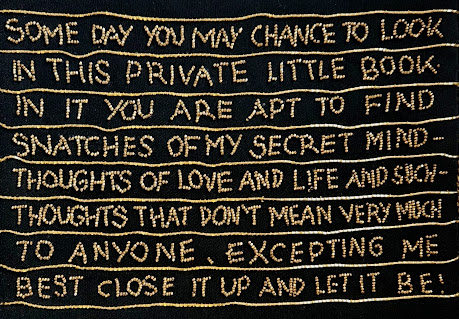 SOME DAY YOU MAY CHANCE TO LOOK
IN THIS PRIVATE LITTLE BOOK.
IN IT YOU ARE APT TO FIND
SNATCHES OF MY SECRET MIND-
THOUGHTS OF LOVE AND LIFE AND SUCH-
THOUGHTS THAT DON'T MEAN VERY MUCH
TO ANYONE, EXCEPTING ME
BEST CLOSE IT UP AND LET IT BE!